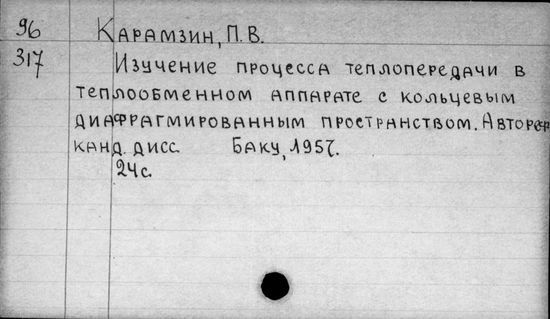 96 Карамзин, П. В.
317 Изучение процесса теплопередачи в
теплообменном аппарате с кольцевым
диафрагмированным пространством. Автореф.
канд. дисс. Баку, 1957.
24с.